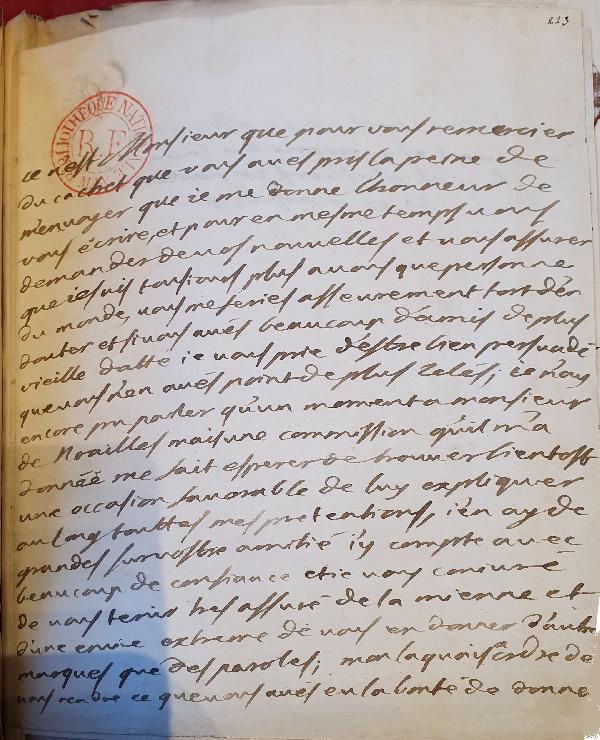 223
BIBLIOTHEQUE NATIONALE
R.F.
ce n'est Monsieur que pour vous remercier
du cachet que vous aués pris la peine de
m'enuoyer que ie me donne l'honneur de
vous écrire, et pour en mesme temps vous
demander de uos nouuelles et vous assurer
que ie suis tousiours plus a uous que personne
du monde, vous me feriés asseurement tort d'en
douter et si vous aués beaucoup d'amis de plus
vieille datte ie vous prie d'estre bien persuadé
que vous n'en aués point de plus zelés; ie n'ay
encore pu parler qu'un moment a monsieur
de Noailles mais une commission qu'il m'a
donnéé me fait esperer de trouuer bientost
une occasion fauorable de luy expliquer
au long touttes mes pretentions, i'en ay de
grandes sur vostre amitié i'y compte auec
beaucoup de confiance et ie vous coniure
de vous tenir tres assuré de la mienne et
d'une enuie extreme de vous en donner d'autre
marques que des paroles; mon laquais a ordre de
vous rendre ce que vous aués eu la bonté de donne